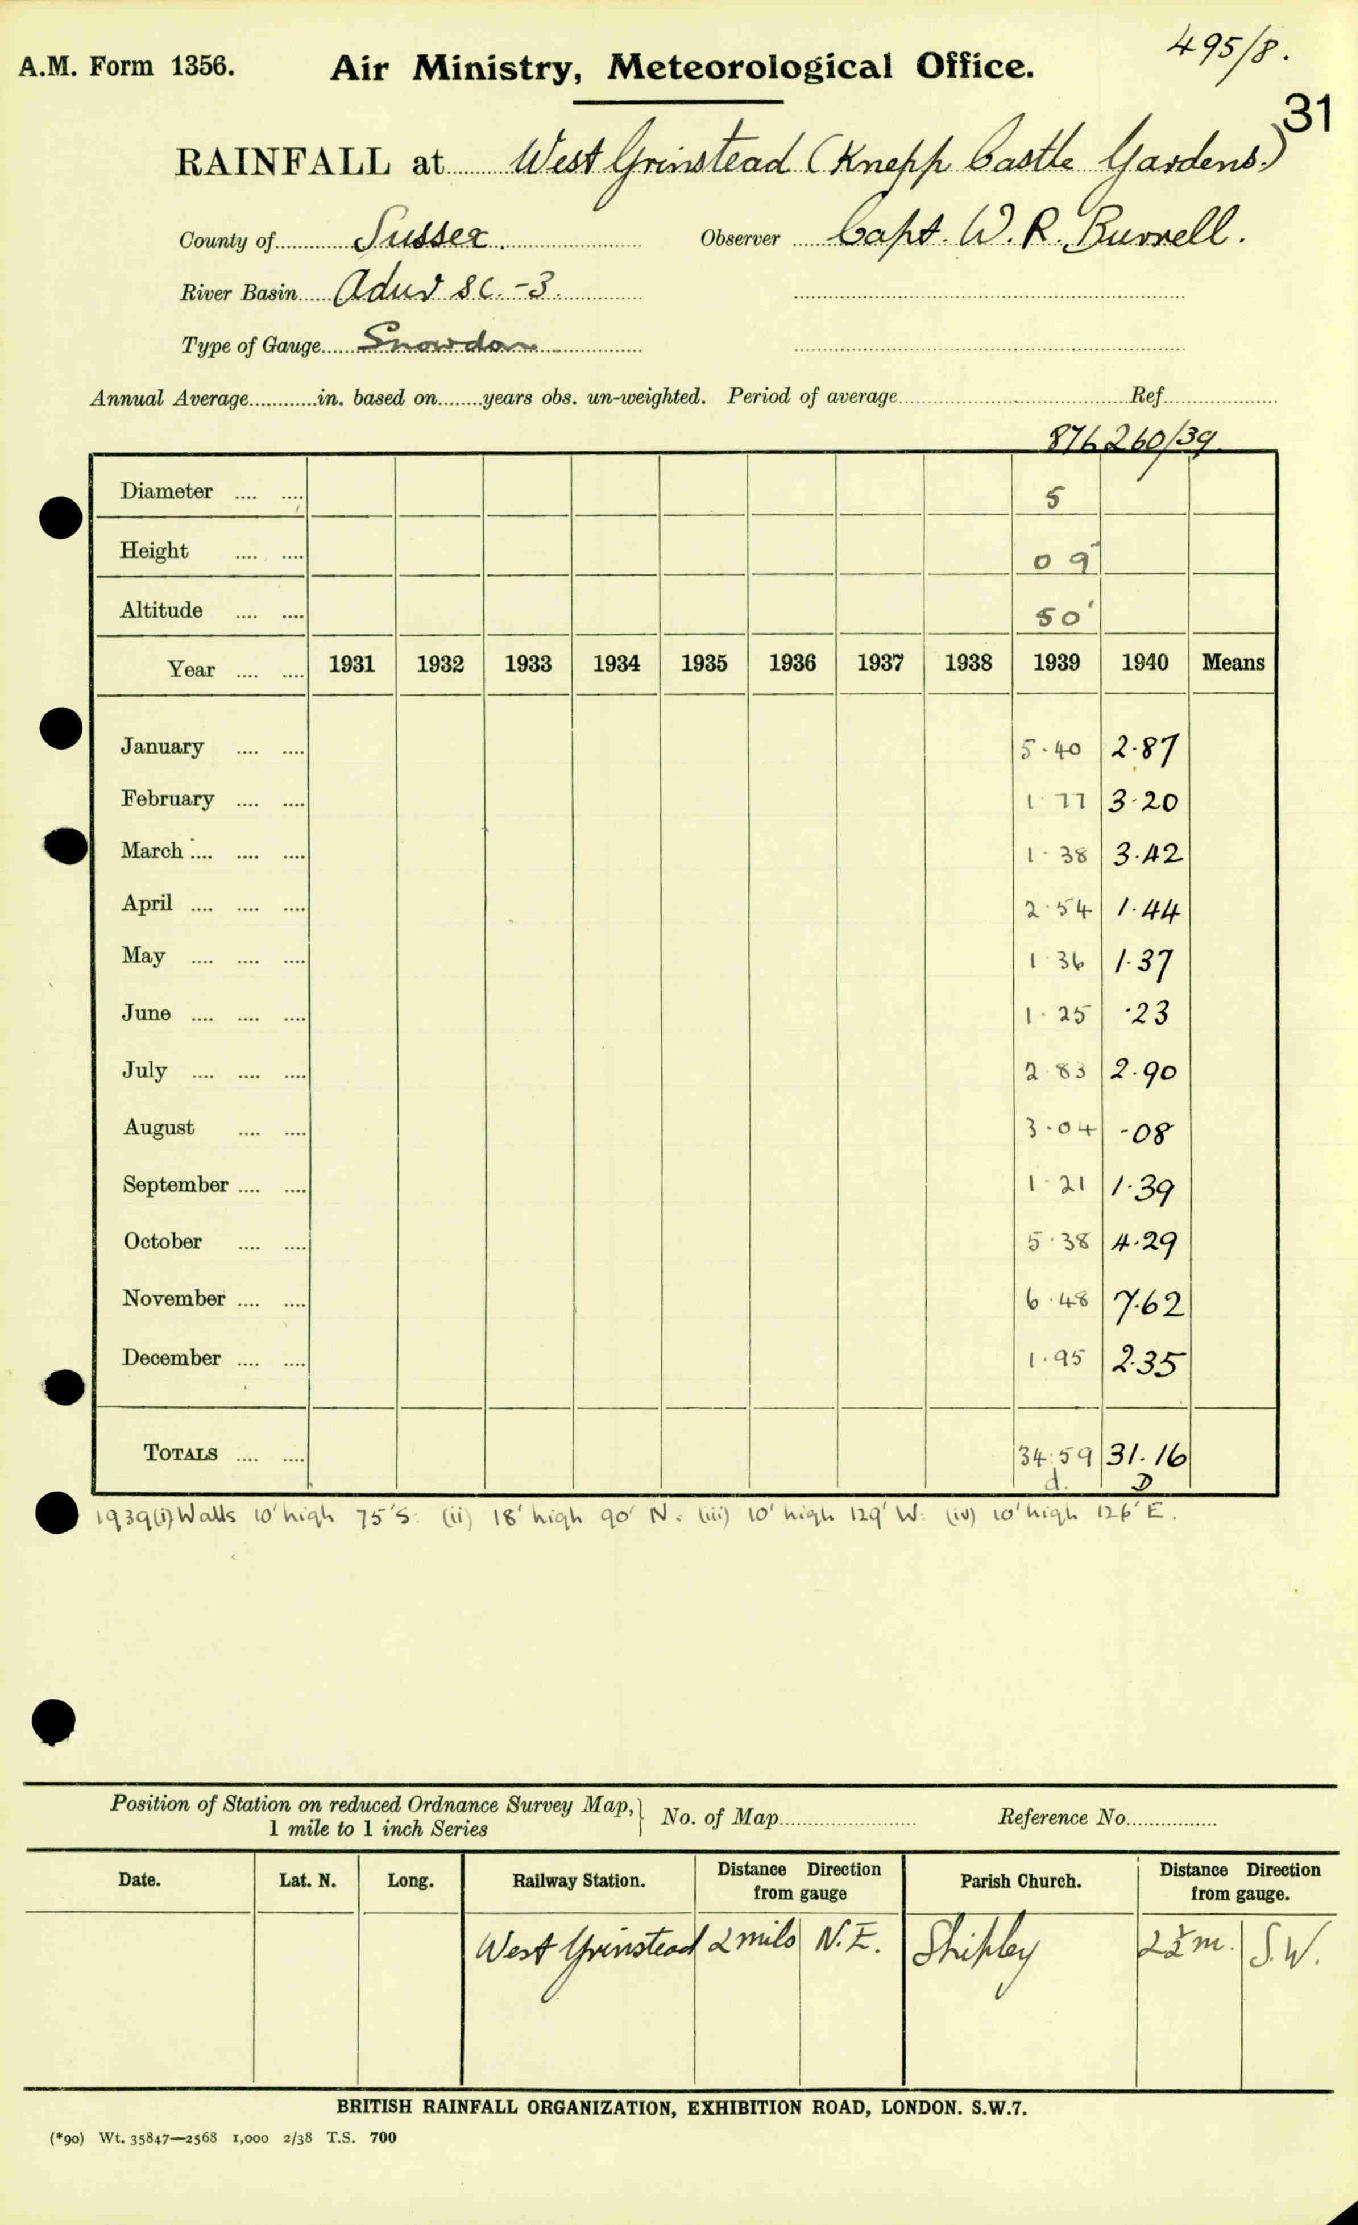 495/8.
A.M. Form 1356. Air Ministry, Meteorological Office.
31
RAINFALL at West Grinstead (Knepp Castle Gardens.)
County of Sussex. Observer Capt. W. R. Burrell.
River Basin Adur SC.-3.
Type of Gauge Snowdon
Annual Average in. based on years obs. un-weighted. Period of average Ref.
876260/39
Diameter 5
Height 0 9"
Altitude 50'
Year 1931 1932 1933 1934 1935 1936 1937 1938 1939 1940 Means
January 5.40 2.87
February 1.77 3.20
March 1.38 3.42
April 2.54 1.44
May 1.36 1.37
June 1.25 .23
July 2.83 2.90
August 3.04 .08
September 1.21 1.39
October 5.38 4.29
November 6.48 7.62
December 1.95 2.35
TOTALS 34.59 31.16
d. D
1939(i) Walls 10' high 75' S. (ii) 18' high 90' N. (iii) 10' high 129' W. (iv) 10' high 126' E.
Position of Station on reduced Ordnance Survey Map, 1 mile to 1 inch Series } No. of Map Reference No.
Date. Lat. N. Long. Railway Station. Distance Direction from gauge Parish Church. Distance Direction from gauge.
West Grinstead 2 mils N.E. Shipley 2½ m. S.W.
BRITISH RAINFALL ORGANIZATION, EXHIBITION ROAD, LONDON. S.W.7.
(*90) Wt. 35847—2568 1,000 2/38 T.S. 700